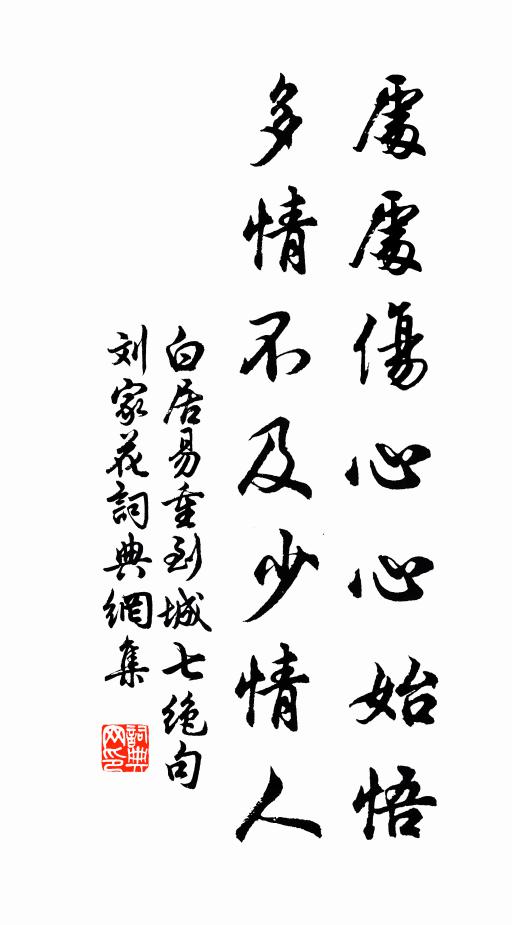 處處傷心心始悟
多情不及少情人
白居易重到城七绝句
刘家花詞典網集
詞典网印